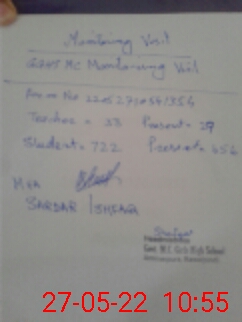 Monitoring Visit
Monitoring Visit
Teacher = 33 Present = 29
Student = 722 Present = 656
MEA
SARDAR ISHFAQ
Headmistress
Govt. M.C. Girls High School
27-05-22 10:55